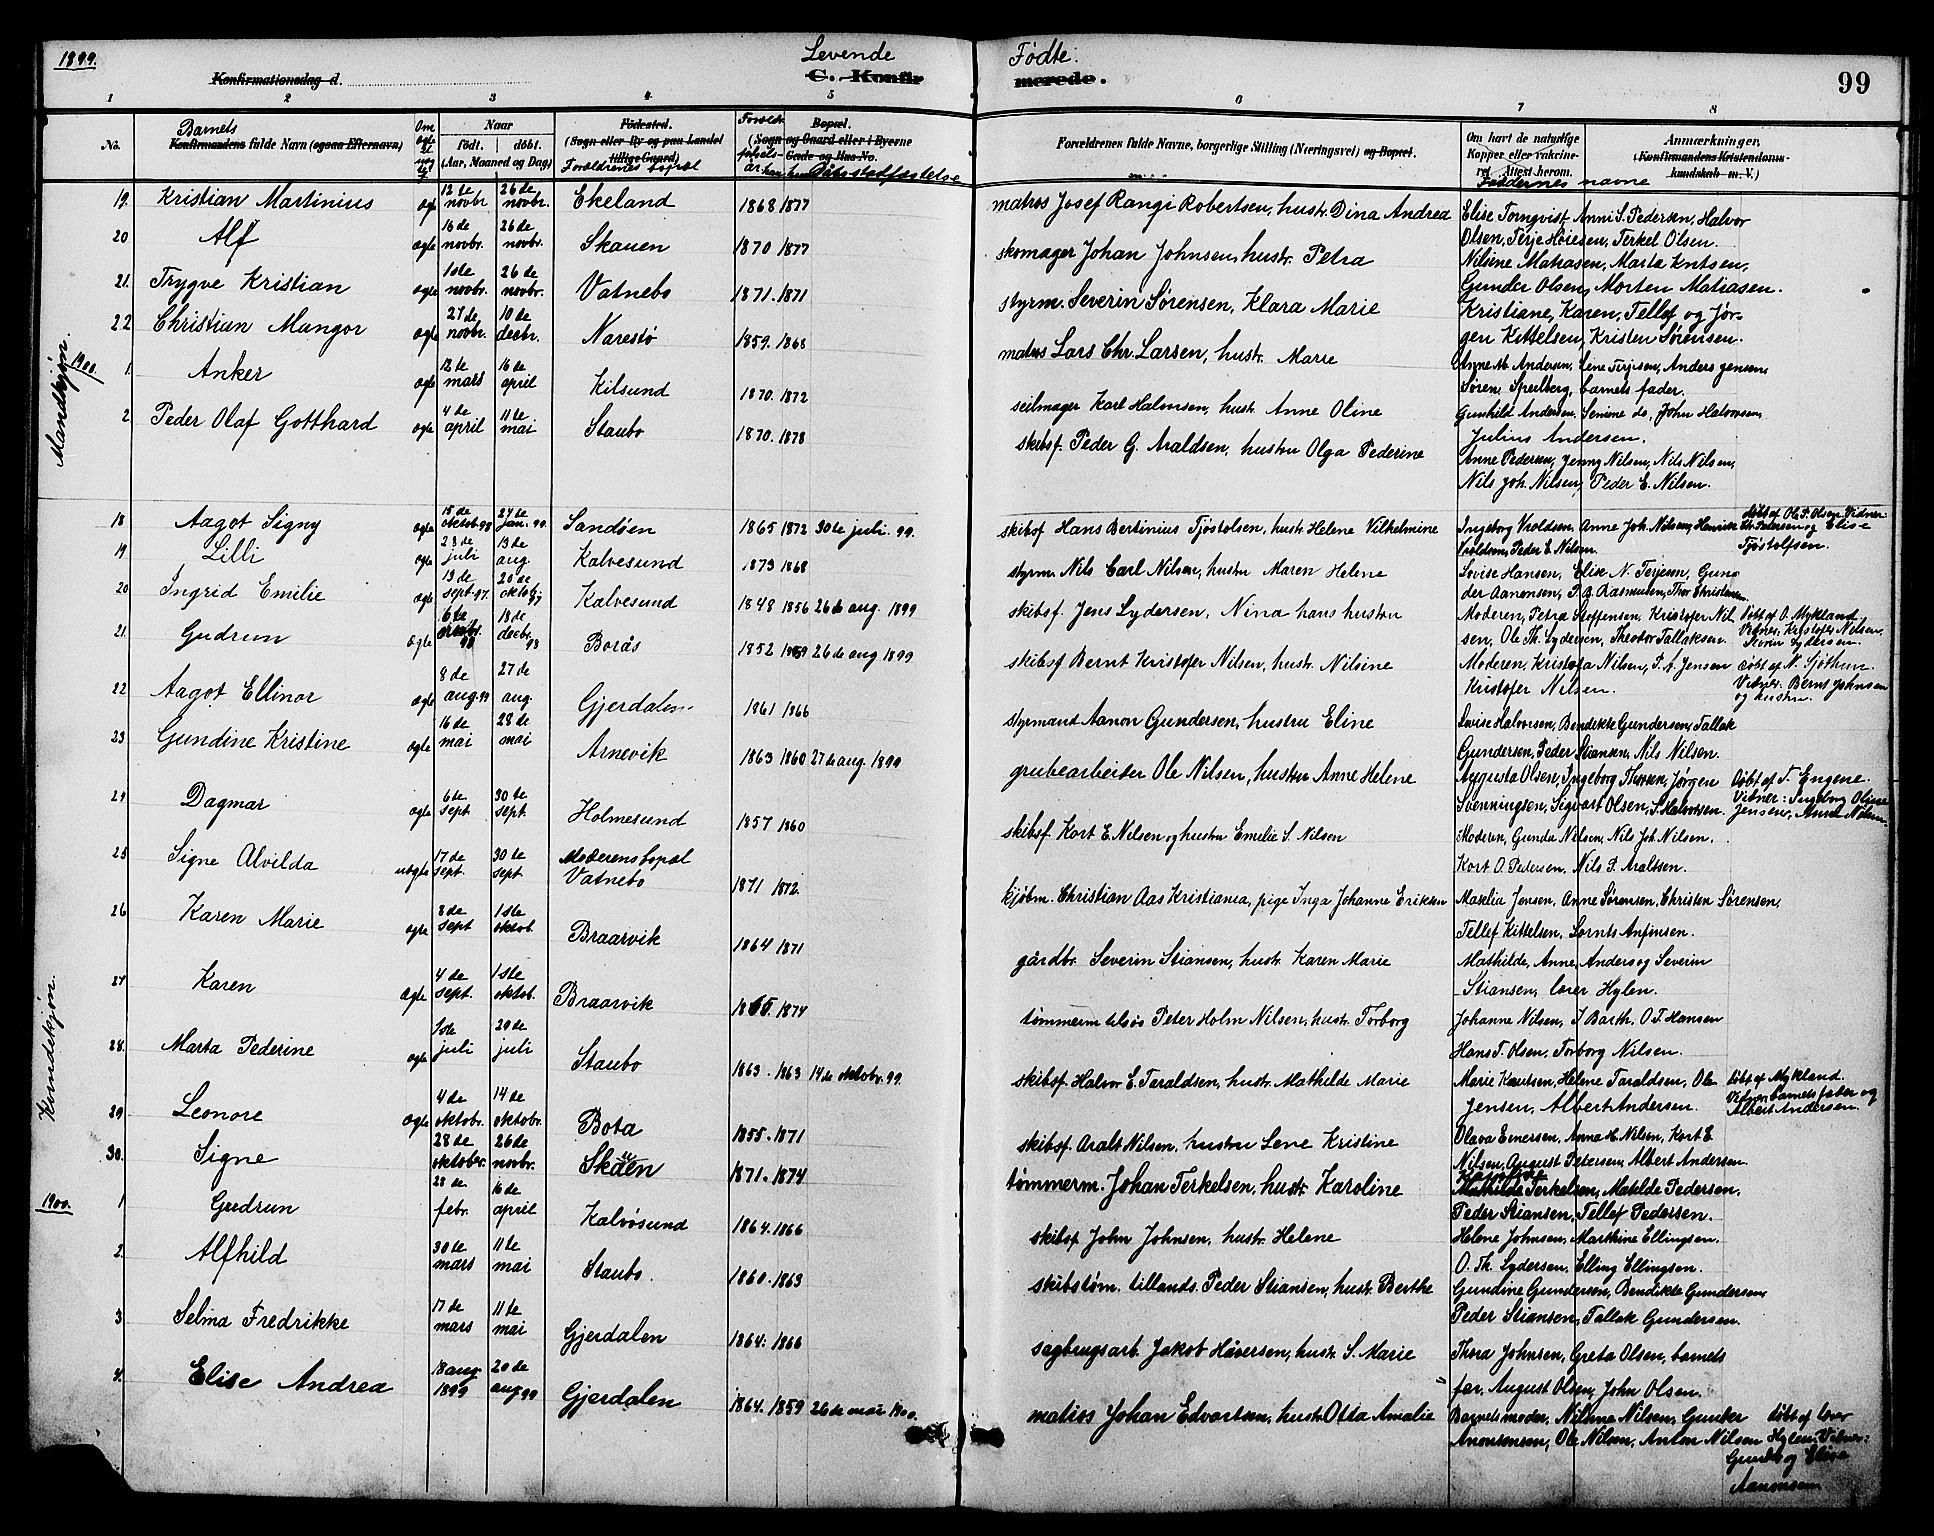 1899.
Levende Fødte.
Konfirmationsdag d.
C. Konfirmerede.
99
1 2 3 4 5 6 7 8
No.
Barnets
Konfirmandens fulde Navn (ogsaa Efternavn)
Om ægte
Naar
født. døbt.
(Aar, Maaned og Dag)
Fødested.
(Sogn eller By og paa Landet tillige Gaard)
Forældrenes bopæl
Bopæl.
(Sogn og Gaard eller i Byerne Gade og Hus-No.
Daabsstadfæstelse
Forældrenes fulde Navne, borgerlige Stilling (Næringsvei) og Bopæl.
Om havt de naturlige Kopper eller vakcineret. Attest herom.
Faddernes navne
Anmærkninger.
(Konfirmandens Kristendomskundskab m. V.)
Mandkjøn.
19. Kristian Martinius ægte 12te novbr. 26de novbr. Ekeland 1868 1877 matros Josef Rangi Robertsen, hustr. Dina Andrea
Elise Tornqvist, Anni S. Pedersen, Halvor
Olsen, Terje Høiesen, Terkel Olsen.
20 Alf ægte 16de novbr. 26de novbr. Skauen 1870 1877 skomager Johan Johnsen, hustr. Petra
Nilsine Matiasen, Marta Kntsen,
Gunder Olsen, Morten Matiasen.
21. Trygve Kristian ægte 1ste novbr. 26de novbr. Vatnebo 1871. 1871 styrm. Severin Sørensen, Klara Marie
Kristiane, Karen, Tellef og Jør-
gen Kittelsen, Kristen Sørensen.
22 Christian Mangor ægte 27de novbr. 10de decbr. Narestø 1859. 1868 matros Lars Chr. Larsen, hustr. Marie
Anne M. Andersen, Lene Terjesen, Anders Jensen,
Søren Speilberg, barnets fader.
1900.
1. Anker ægte 12te mars 16de april Kilsund 1870. 1872 seilmager Karl Halvorsen, hustr. Anne Oline
Gunhild Andersen, Senine do, John Halvorsen,
Julius Andersen.
2 Peder Olaf Gotthard ægte 4de april 11te mai Staubo 1870. 1878 skibsf. Peder G. Araldsen, hustru Olga Pederine
Anne Pedersen, Jenny Nilsen, Nils Nilsen,
Nils Joh. Nilsen, Peder E. Nilsen.
Kvindekjøn.
18 Aagot Signy ægte 15de oktob. 98 24de jan. 99. Sandøen 1865 1872 30te juli. 99. skibsf Hans Bertinius Tjøstolsen, hustr. Helene Vilhelmine
Ingeborg Vroldsen, Anne Joh. Nilsen, Henrie
Vroldsen, Peder E. Nilsen.
døbt af Ole P. Olsen. Vidner:
Th. Pedersen og Elise
Tjøstolfsen.
19 Lilli ægte 23de juli 13de aug. Kalvesund 1873 1868 styrm. Nils Carl Nilsen, hustru Maren Helene
Lovise Hansen, Elise N. Terjesen, Gun-
der Aanonsen, P. A. Rasmusen, Thor Christensen
20 Ingrid Emilie ægte 13de sept. 97. 20de oktob. 97 Kalvesund 1848 1856 26de aug. 1899 skibsf. Jens Lydersen, Nina hans hustru
Moderen, Petra Steffensen, Kristofer Nil
sen, Ole Th. Lydersen, Theodor Tallaksen.
døbt af O. Mykland
Vidner, Kristofer Nilsen,
Nina Lydersen
21. Gudrun ægte 6te 98 18de decbr. 98 Borås 1852 1859 26de aug 1899 skibsf Bernt Kristofer Nilsen, hustr. Nilsine
Moderen, Kristofa Nilsen, P. A. Jensen
Kristofer Nilsen.
døbt af N. Gjothun.
Vidner: Bernt Johnsen
og hustru.
22 Aagot Ellinor ægte 8de aug. 99 27de aug. Gjerdalen 1861 1866 styrmand Aanon Gundersen, hustru Eline
Lovise Halvorsen, Bendikte Gundersen, Tallak
Gundersen, Peder Stiansen, Nils Nilsen.
23 Gundine Kristine ægte 16de mai 28de mai Arnevik 1863 1860 27de aug. 1890 grubearbeider Ole Nilsen, hustru Anne Helene
Augusta Olsen, Ingeborg Thorsen, Jørgen
Svenningsen, Sigvart Olsen, S. Halvorsen
døbt af T. Engene.
Vidner: Ingeborg Oline
Jensen, Anna Nilsen.
24 Dagmar ægte 6te sept 30te sept. Holmesund 1857 1860 skibsf. Kort E. Nilsen og hustru Emelie S. Nilsen
Moderen, Gunda Nilsen, Nils Joh. Nilsen.
Kort O. Pedersen, Nils P. Araltsen.
25 Signe Alvilda uægte 17de sept. 30te sept Moderens bopæl Vatnebo 1871 1872 kjøbm. Christian Aas Kristiania, pige Inga Johanne Eriksen
Maselia Jensen, Anne Sørensen, Christen Sørensen,
Tellef Kittelsen, Sornts Anfinsen.
26 Karen Marie ægte 8de sept 1ste oktob. Braarvik 1864 1871 gårdbr. Severin Stiansen, hustr. Karen Marie
Mathilde, Anne, Anders og Severin
Stiansen, lærer Hylen.
27 Karen ægte 4de sept. 1ste oktob. Braarvik 1865. 1874 tømmerm tilsøs Peter Holm Nilsen, hustr. Torborg
Johanne Nilsen, J Barth. O. T. Hansen
Hans T. Olsen, Torborg Nilsen.
28. Marta Pederine ægte 1ste juli 20de juli Staubo 1863. 1863 14de oktobr. 99. skibsf. Halvor E. Taraldsen, hustr. Mathilde Marie
Marie Knutsen, Helene Taraldsen, Ole
Jensen, Albert Andersen.
døbt af Mykland.
Vidner barnets fader og
Albert Andersen.
29 Leonore ægte 4de oktobr. 14de oktobr. Bota 1855. 1871 skibsf. Aralt Nilsen, hustru Lene Kristine
Olava Einersen, Anna H. Nilsen, Kort E.
Nilsen, August Petersen, Albert Andersen
30. Signe 28de oktober. 26de novbr. Skauen 1871. 1874 tømmerm. Johan Terkelsen, hustr. Karoline
Mathilde Terkelsen, Matilde Pedersen.
Peder Stiansen, Tellef Pedersen.
1900.
1 Gudrun 28de febr. 16de april Kalvøsund 1864. 1866 skibsf John Johnsen, hustr. Helene
Helene Johnsen, Marthine Ellingsen.
O. Th. Lydersen, Elling Ellingsen.
2. Alfhild 30te mars 11te mai Staubo. 1860. 1863 skibstøm. tillands Peder Stiansen, hustr. Berthe
Gundine Gundersen, Bendikte Gundersen,
Peder Stiansen, Tallak Gundersen.
3 Selma Fredrikke 17de mars 11te mai Gjerdalen 1864. 1866 sagbrugsarb. Jakob Håversen, hustr. S. Marie
Thora Johnsen, Greta Olsen, barnets
far, August Olsen, John Olsen.
4. Elise Andrea 18 aug. 1899 20de aug 99 Gjerdalen 1864. 1859 26de mai 1900. matros Johan Edvartsen, hustr. Otta Amalie
Barnets moder, Nilsine Nilsen, Gunder
Anonsensen, Ole Nilsen, Anton Nilsen
døbt af lærer
Hylen. Vidner:
Gunder og Elise
Aanonsen